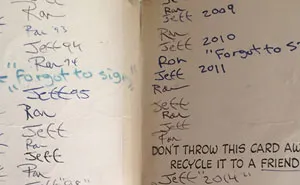 Ron
Ron 93
Jeff 94
Ron 94
"Forgot to sign"
Jeff 95
Ron
Jeff
Ron
Jeff
Ron
"98"
Jeff 2009
Ron
Jeff 2010
Ron "Forgot to si
Jeff 2011
Ron
Jeff
Ron
Jeff
Ron
DON'T THROW THIS CARD AW
RECYCLE IT TO A FRIEND
Jeff "2014"